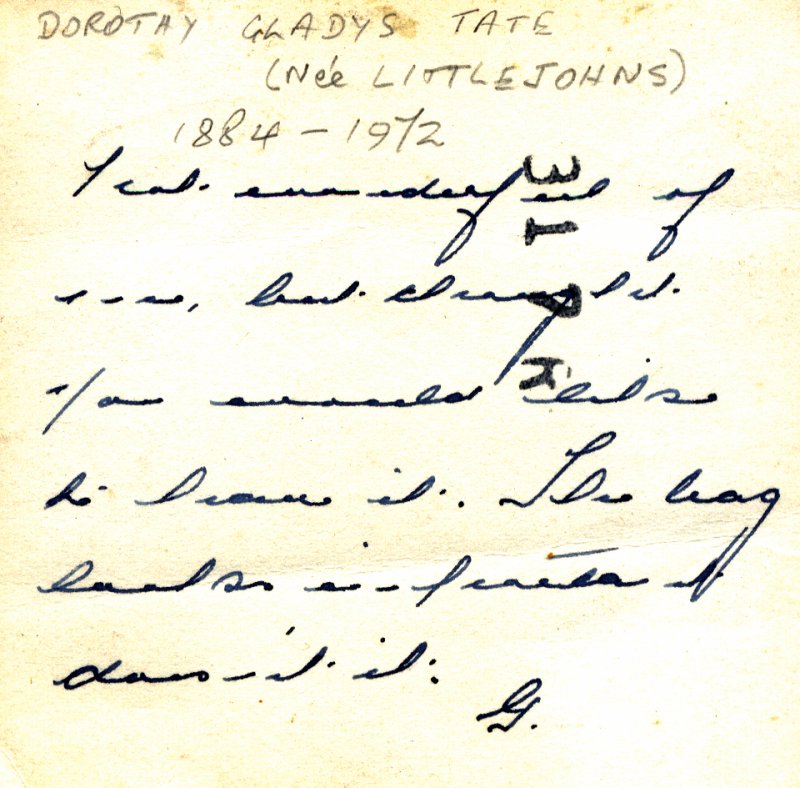 DOROTHY GLADYS TATE
(Née LITTLEJOHNS)
1884 – 1972
Not wonderful of
me, but thought
you would like
to have it. The bag
looks
doesn't it.
G.